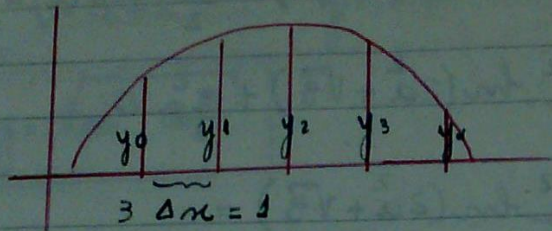 y0 y1 y2 y3 y4
3 Δx = 1